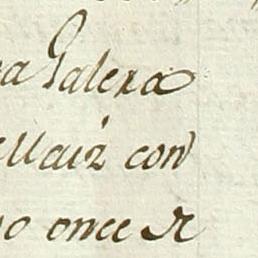 a Galera
ellaiz con
no once de